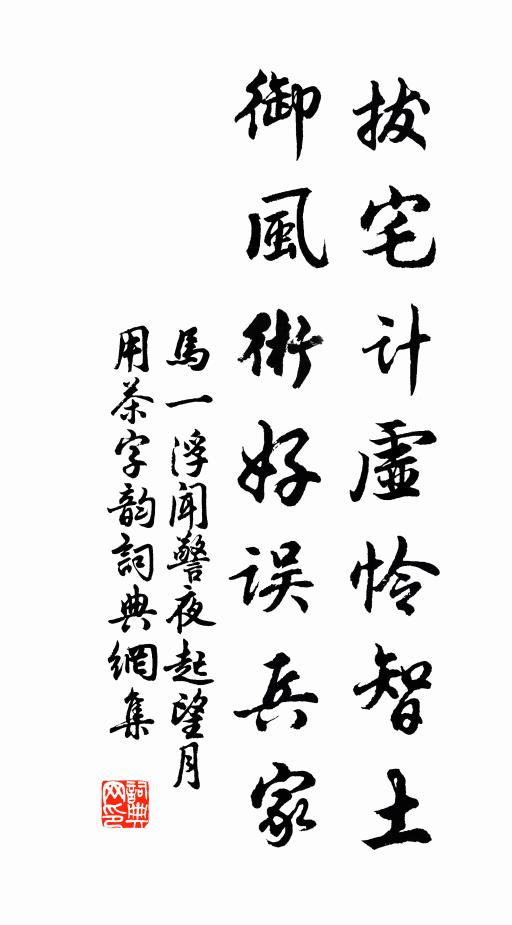 拔宅计虛怜智土
御風術好误兵家
馬一浮闻警夜起望月
用茶字韵詞典網集
詞典网印